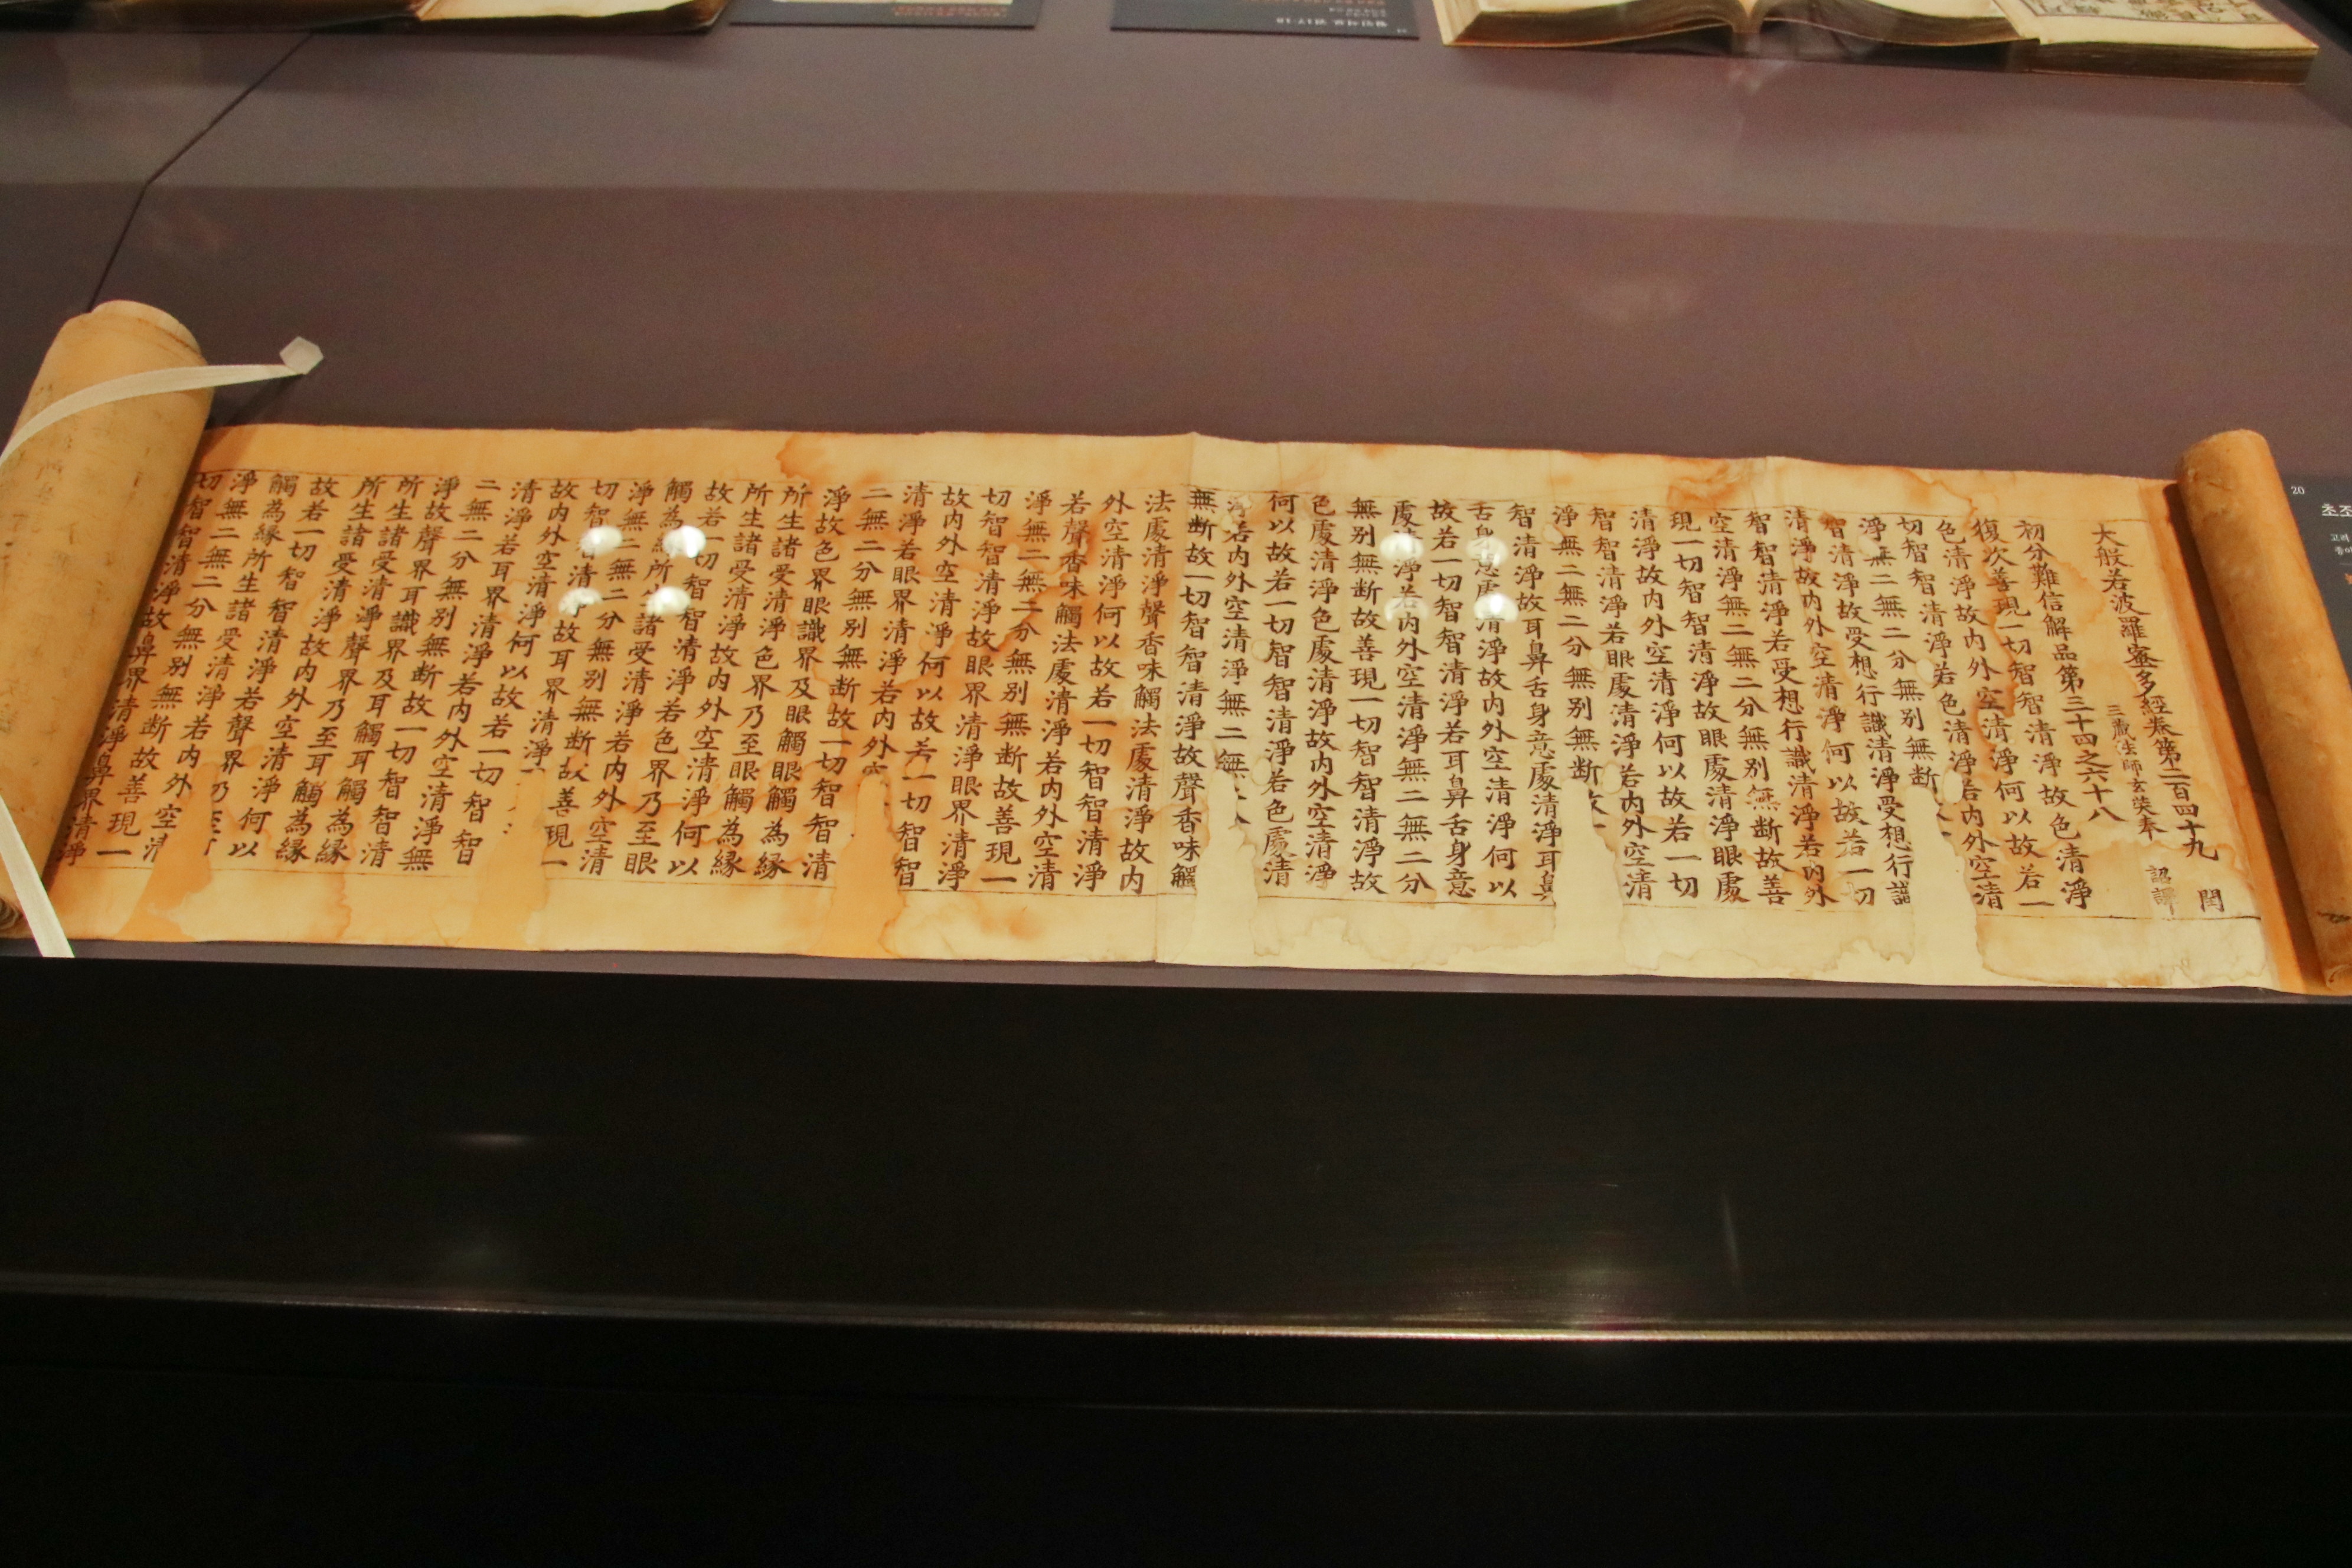 大般若波羅蜜多經卷第二百四十九 閏
三藏法師玄奘奉 詔譯
初分難信解品第三十四之六十八
復次善現一切智智清淨故色清淨
色清淨故内外空清淨何以故若一
切智智清淨若色清淨若内外空清
淨無二無二分無別無断
智清淨故受想行識清淨受想行識
清淨故内外空清淨何以故若一切
智智清淨若受想行識清淨若内外
空清淨無二無二分無別無断故善
現一切智智清淨故眼處清淨眼處
清淨故内外空清淨何以故若一切
智智清淨若眼處清淨若内外空清
淨無二無二分無別無断故一
智清淨故耳鼻舌身意處清淨耳鼻
舌身意處清淨故内外空清淨何以
故若一切智智清淨若耳鼻舌身意
處清淨若内外空清淨無二無二分
無別無断故善現一切智智清淨故
色處清淨色處清淨故内外空清淨
何以故若一切智智清淨若色處清
淨若内外空清淨無二無
無断故一切智智清淨故聲香味觸
法處清淨聲香味觸法處清淨故内
外空清淨何以故若一切智智清淨
若聲香味觸法處清淨若内外空清
淨無二無二分無別無断故善現一
切智智清淨故眼界清淨眼界清淨
故内外空清淨何以故若一切智智
清淨若眼界清淨若内外
二無二分無別無断故一切智智清
淨故色界眼識界及眼觸眼觸為縁
所生諸受清淨色界乃至眼觸為縁
所生諸受清淨故内外空清淨何以
故若一切智智清淨若色界乃至眼
觸為縁所生諸受清淨若内外空清
淨無二無二分無別無断故善現一
切智智清淨故耳界清淨
故内外空清淨何以故若一切智智
清淨若耳界清淨若内外空清淨無
二無二分無別無断故一切智智清
淨故聲界耳識界及耳觸耳觸為縁
所生諸受清淨聲界乃至耳觸為縁
所生諸受清淨故内外空清淨何以
故若一切智智清淨若聲界乃至
觸為縁所生諸受清淨若内外空清
淨無二無二分無別無断故善現一
切智智清淨故鼻界清淨鼻界清淨
20
초조
고려
월인석보 권17·18